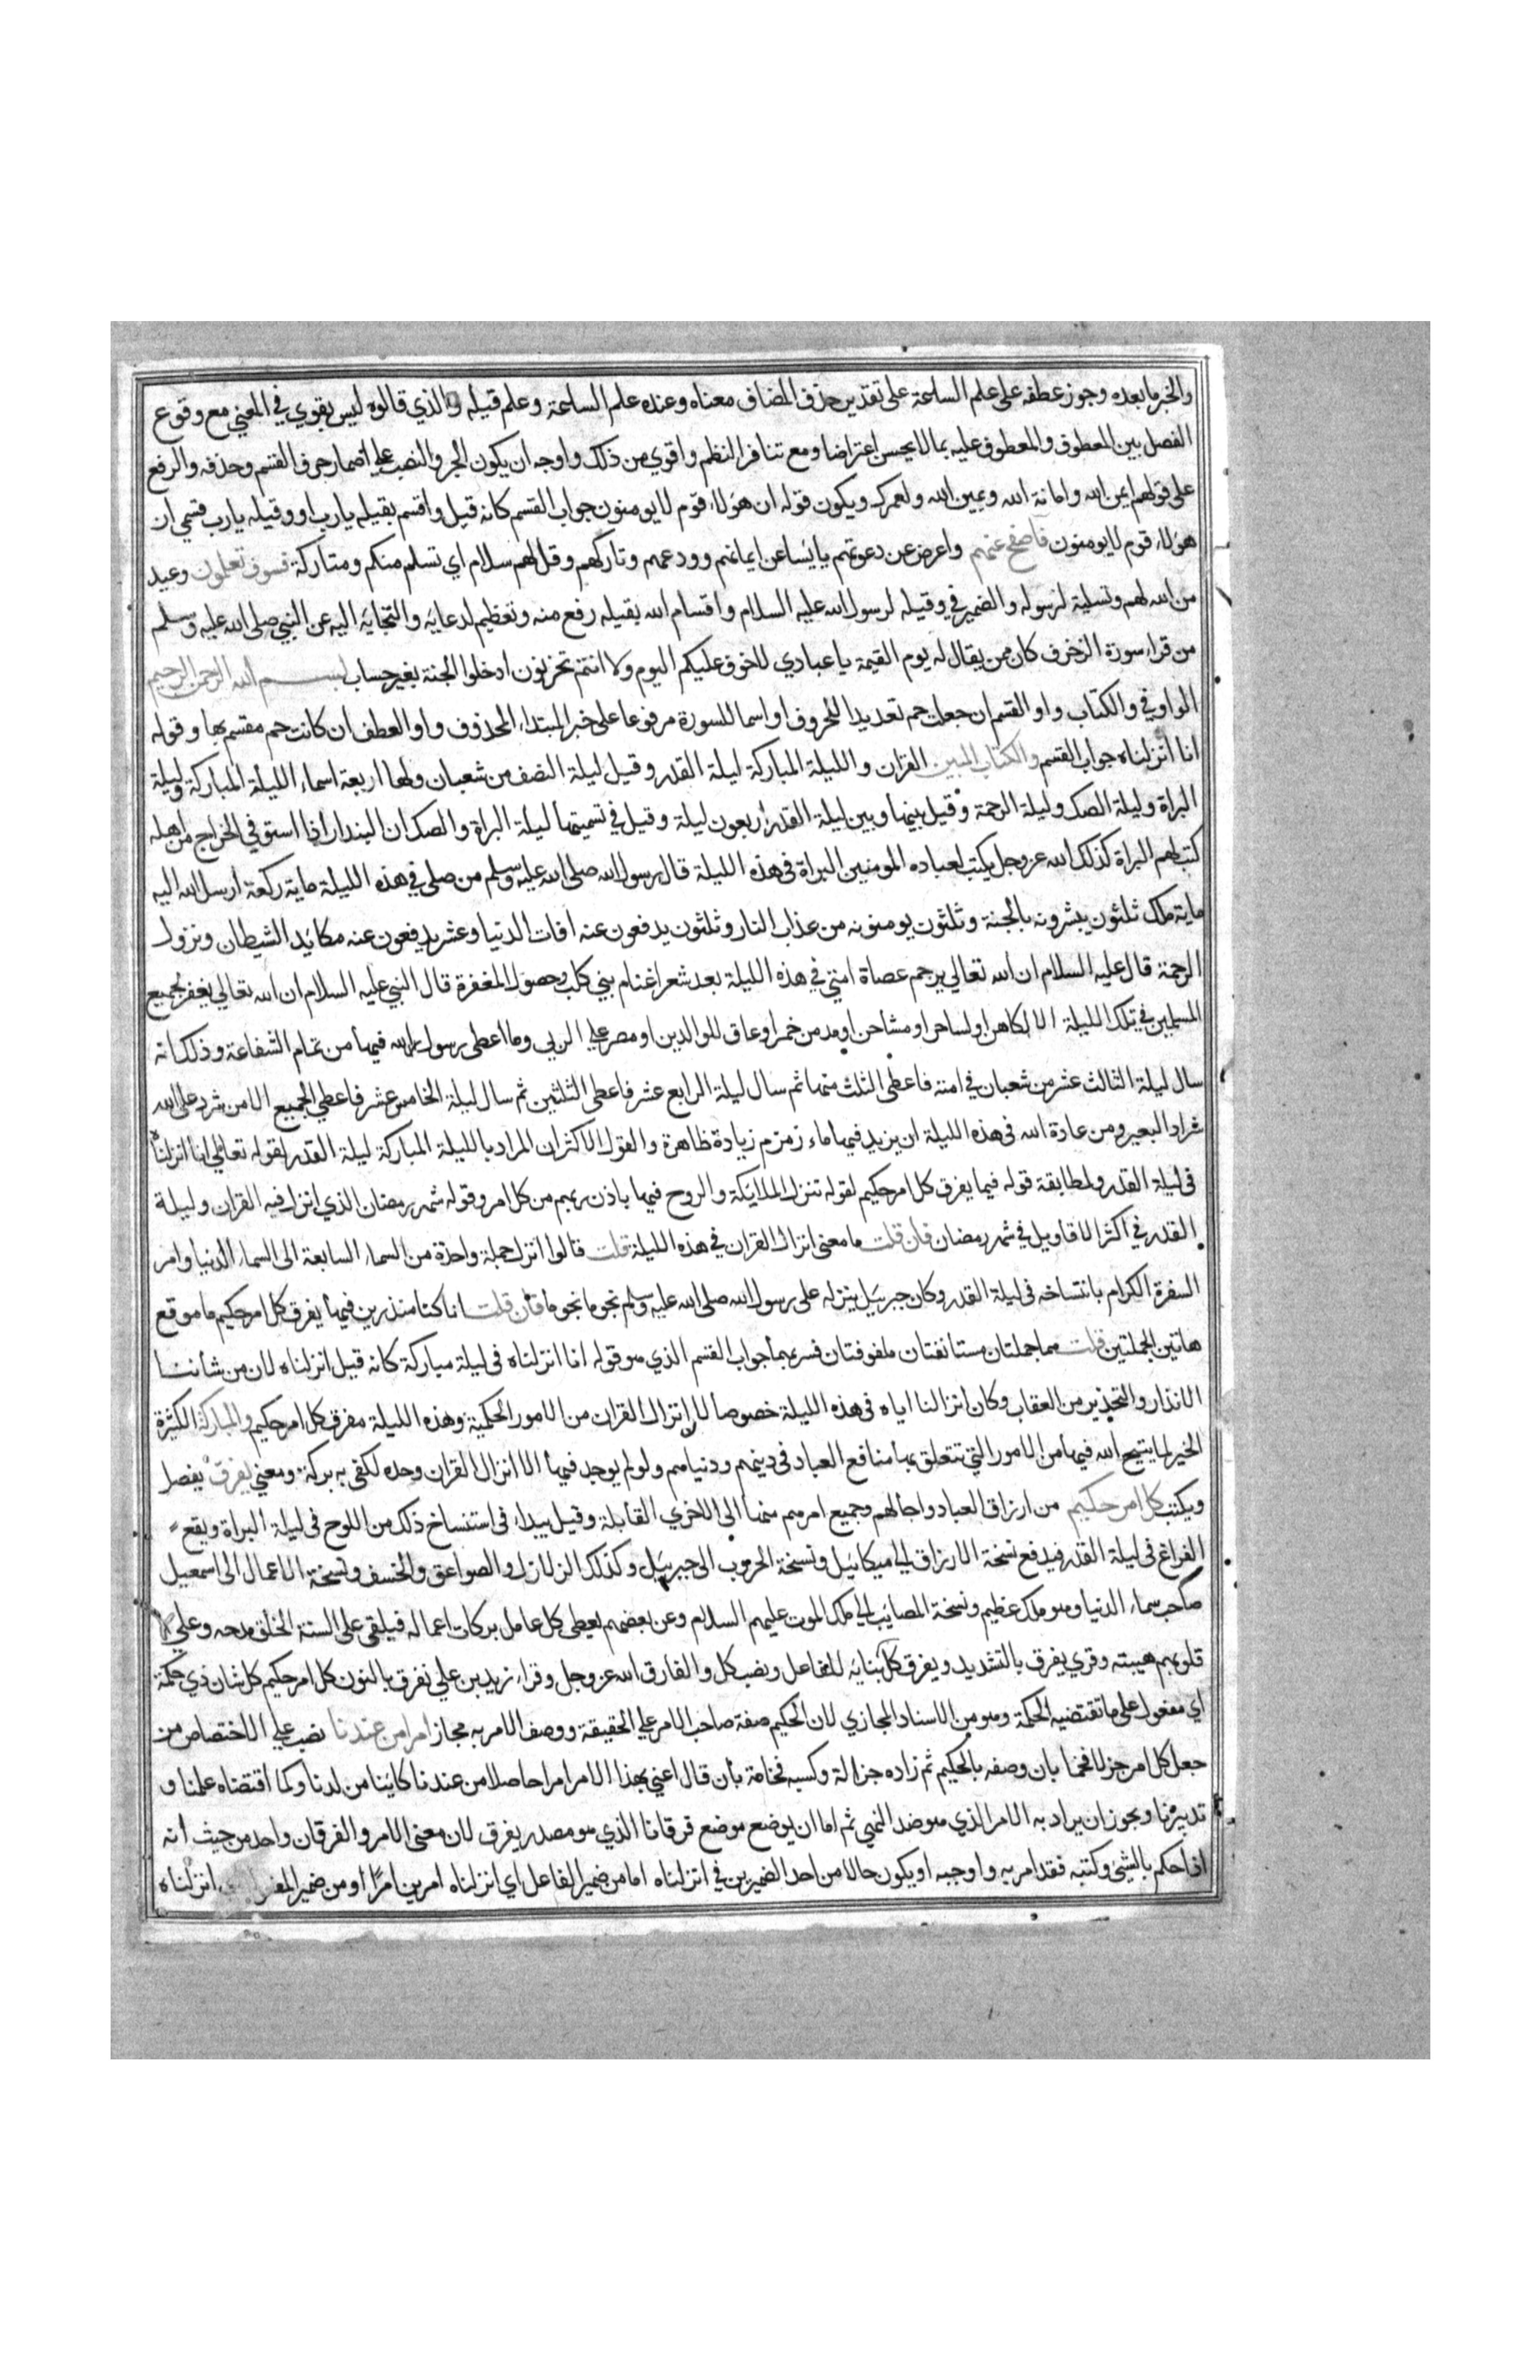 والخبر ما بعده وجوز عطفه على علم الساعة على تقدير حذف المضاف معناه وعنده علم الساعة وعلم قيله والذي قالوه ليس بقوي في المعني مع وقوع
الفصل بين المعطوف والمعطوف عليه بما لا يحسن اعتراضا ومع تنافر النظم واقوي من ذلك واوجه ان يكون الجر والنصب علي اضمار حرف القسم وحذفه والرفع
على قولهم ايمن الله وامانة الله ويمين الله ولعمرك ويكون قوله ان هؤلاء قوم لا يومنون جواب القسم كانه قيل واقسم بقيله يا رب او وقيله يا رب قسمي ان
هؤلاء قوم لا يومنون فاصفح عنهم واعرض عن دعوتهم يائسا عن ايمانهم وودعهم وتاركهم وقل لهم سلام اي تسلم منكم ومتاركة فسوف تعلمون وعيد
من الله لهم وتسلية لرسوله والضمير في وقيله لرسول الله عليه السلام واقسام الله بقيله رفع منه وتعظيم لدعايه والتجايه اليه عن النبي صلى الله عليه وسلم
من قراء سورة الزخرف كان ممن يقال له يوم القيمة يا عبادي لا خوف عليكم اليوم ولا انتم تحزنون ادخلوا الجنة بغير حساب بسم الله الرحمن الرحيم
الواو في والكتاب واو القسم ان جعلت حم تعديدا للحروف او اسما للسورة مرفوعا على خبر المبتداء المحذوف وواو العطف ان كانت حم مقسم بها وقوله
انا انزلناه جواب القسم والكتاب المبين القران والليلة المباركة ليلة القدر وقيل ليلة النصف من شعبان ولها اربعة اسماء الليلة المباركة وليلة
البراة وليلة الصك وليلة الرحمة وقيل بينها وبين ليلة القدر اربعون ليلة وقيل في تسميتها ليلة البراة والصك ان البندار اذا استوفي الخراج من اهله
كتب لهم البراة كذلك الله عز وجل يكتب لعباده المومنين البراة في هذه الليلة قال رسول الله صلى الله عليه وسلم من صلى في هذه الليلة ماية ركعة ارسل الله اليه
ماية ملك ثلثون يبشرونه بالجنة وثلثون يومنونه من عذاب النار وثلثون يدفعون عنه افات الدنيا وعشر يدفعون عنه مكايد الشيطان ونزول
الرحمة قال عليه السلام ان الله تعالي يرحم عصاة امتي في هذه الليلة بعد شعر اغنام بني كلب وحصول المغفرة قال النبي عليه السلام ان الله تعالي يغفر لجميع
المسلمين في تلك الليلة الا لكاهن او لساحر او مشاحن او مدمن خمر او عاق للوالدين او مصر علي الربي وما اعطي رسول الله فيها من تمام الشفاعة وذلك انه
سال ليلة الثالث عشر من شعبان في امته فاعطى الثلث منها ثم سال ليلة الرابع عشر فاعطى الثلثين ثم سال ليلة الخامس عشر فاعطي الجميع الا من شرد على الله
شراد البعير ومن عادة الله في هذه الليلة ان يزيد فيها ماء زمزم زيادة ظاهرة والقول الاكثر ان المراد بالليلة المباركة ليلة القدر لقوله تعالي انا انزلناه
في ليلة القدر ولمطابقة قوله فيها يفرق كل امر حكيم لقوله تنزل الملائكة والروح فيها باذن ربهم من كل امر وقوله شهر رمضان الذي انزل فيه القران وليلة
القدر في اكثر الاقاويل في شهر رمضان فان قلت ما معنى انزال القران في هذه الليلة قلت قالوا انزل جملة واحدة من السماء السابعة الى السماء الدنيا وامر
السفرة الكرام بانتساخه في ليلة القدر وكان جبرئيل ينزله على رسول الله صلى الله عليه وسلم نجوما نجوما فان قلت انا كنا منذرين فيها يفرق كل امر حكيم ما موقع
هاتين الجملتين قلت هما جملتان مستانفتان ملفوفتان فسر بهما جواب القسم الذي هو قوله انا انزلناه في ليلة مباركة كانه قيل انزلناه لان من شاننا
الانذار والتحذير من العقاب وكان انزالنا اياه في هذه الليلة خصوصا لان انزال القران من الامور الحكمية وهذه الليلة مفرق كل امر حكيم والمباركة الكثيرة
الخير لما يتيح الله فيها من الامور التي تتعلق بها منافع العباد في دينهم ودنياهم ولو لم يوجد فيها الا انزال القران وحده لكفى به بركة ومعني يفرق يفصل
ويكتب كل امر حكيم من ارزاق العباد واجالهم وجميع امرهم منها الى الاخري القابلة وقيل يبداء في استنساخ ذلك من اللوح في ليلة البراة ويقع
الفراغ في ليلة القدر فيدفع نسخة الارزاق الي ميكائيل ونسخة الحروب الى جبرئيل وكذلك الزلازل والصواعق والخسف ونسخة الاعمال الى اسمعيل
صاحب سماء الدنيا وهو ملك عظيم ونسخة المصايب الي ملك الموت عليهم السلام وعن بعضهم يعطى كل عامل بركات اعماله فيلقى على السنة الخلق مدحه وعلي
قلوبهم هيبته وقري يفرق بالتشديد ويفرق كل ببنايه للفاعل ونصب كل والفارق الله عز وجل وقراء زيد بن علي نفرق بالنون كل امر حكيم كل شان ذي حكمة
اي مفعول على ما تقتضيه الحكمة وهو من الاسناد المجازي لان الحكيم صفة صاحب الامر علي الحقيقة ووصف الامر به مجاز امرا من عندنا نصب علي الاختصاص من
جعل كل امر جزلا فخما بان وصفه بالحكيم ثم زاده جزالة وكسبه فخامة بان قال اعني بهذا الامر امرا حاصلا من عندنا كائنا من لدنا وكما اقتضاه علمنا و
تدبيرنا ويجوز ان يراد به الامر الذي هو ضد النهي ثم اما ان يوضع موضع فرقانا الذي هو مصدر يفرق لان معنى الامر والفرقان واحد من حيث انه
اذا حكم بالشئ وكتبه فقد امر به واوجبه او يكون حالا من احد الضميرين في انزلناه اما من ضمير الفاعل اي انزلناه امرين امرا او من ضمير المفعول انزلناه